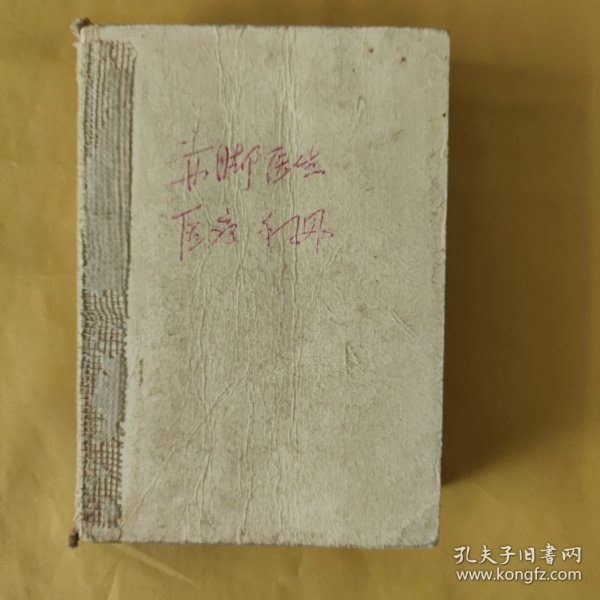 赤脚医生
医疗手册
孔夫子旧书网
www.kongfz.com